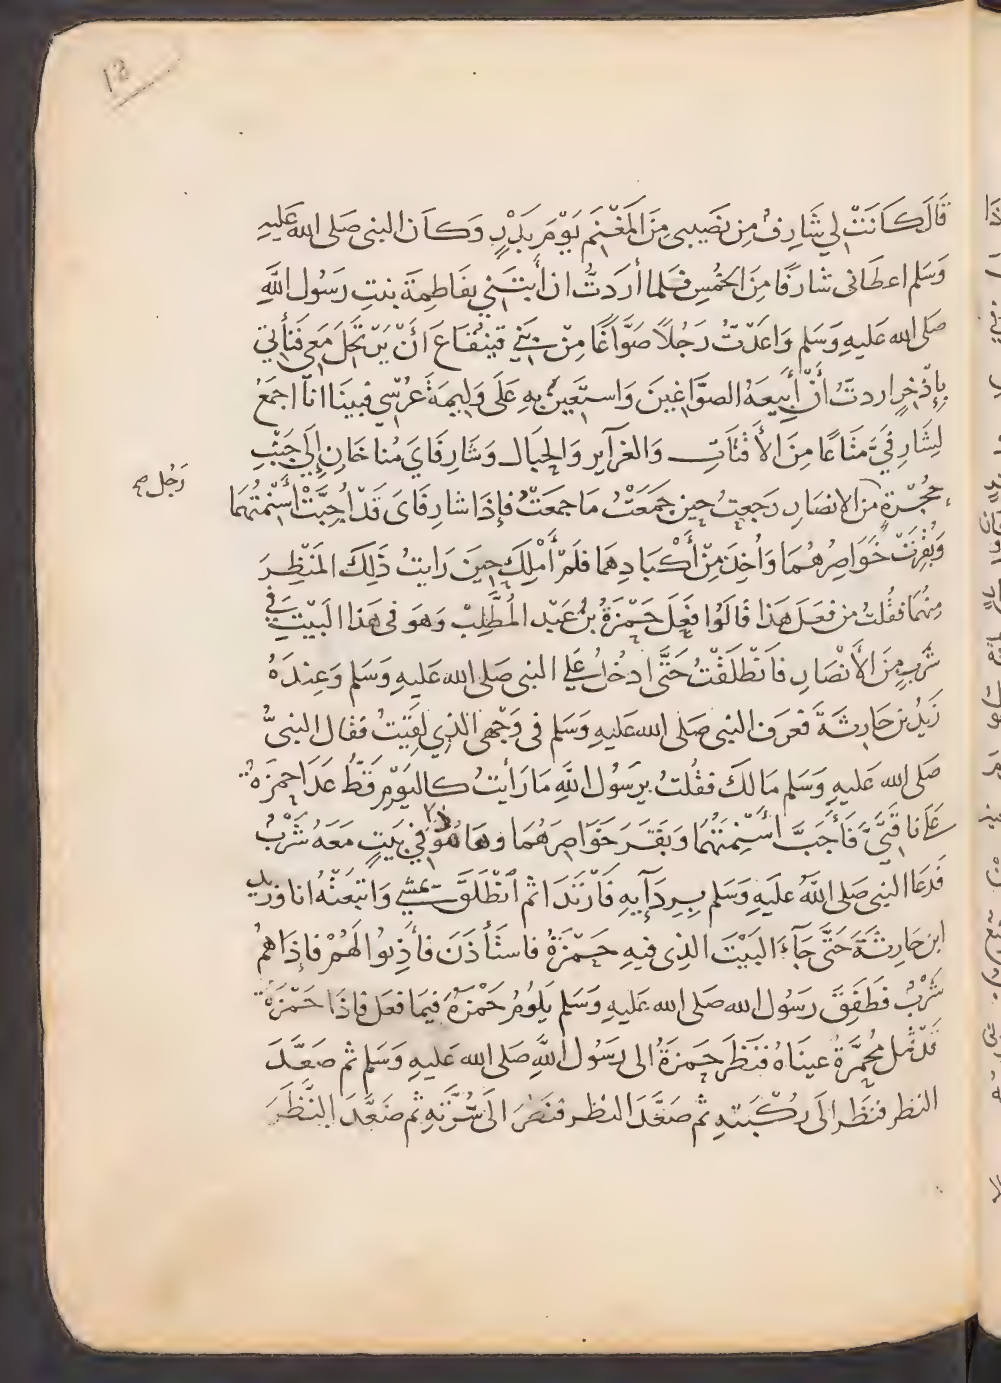 12
قَالَ كَانَتْ لي شَارِفٌ مِن نَصِيبي مِنَ المَغْنَمِ يَوْمَ بَدْرٍ وَكَانَ النبى صَلى الله عَليهِ
وَسَلم اعطَانى شَارفًا مِنَ الخُمسِ فلما أرَدتُ ان أَبتَنيَ بفَاطِمةَ بنتِ رَسُول اللَّهِ
صَلى الله عَليهِ وَسَلم وَاعَدْتُ رَجُلاً صَوَّاغًا مِنْ بَني قينُقَاعَ اَنْ يَرْتَحِلَ مَعي فَنَأتي
بِإذْخِرٍ اردتُ أَنْ أَبِيعَهُ الصوَّاغِينَ وَاستَعِينُ بهِ عَلَى وَلِيمَةِ عُرْسي فبينَا انَا اجمَعُ
لِشَارِفيَّ مَتَاعًا مِنَ الأَقْتَابِ وَالغرَآيرِ وَالحِبَال وَشَارِفَايَ مُناخَانِ إِلَى جَنْبِ
رَجُل صح
حُجْرَةِ مِنَ الانصَارِ رَجعتُ حِين جَمَعَتْ مَا جمعَتْ فإذَا شارفَاىَ قَدْ اجِبَّتْ أَسْنِمَتُهُمَا
وَبُقِرَتْ خَوَاصِرُهُمَا وَأُخِذَ مِنْ أَكْبَادِهِمَا فَلَمْ أَمْلِكْ حِينَ رَايتُ ذَلِكَ المَنْظِرَ
مِنْهُمَا فَقُلتُ مَن فَعَلَ هَذا قَالَوُا فَعَلَ حَمْزَةُ بْنُ عَبْد المُطَّلِبْ وَهوَ فى هَذا الَبَيْتِ في
شَرْبٍ مِنَ الأَنْصَارِ فَانْطَلَقْتُ حَتَّى ادخُلُ عَلي النبى صَلى الله عَليهِ وَسَلم وَعِندَهُ
زَيْدُ بن حَارِثَةَ فَعرَفَ النبى صَلى الله عَليهِ وَسَلم فى وَجْهى الذِي لَقِيَتُ فَقَال النبىُّ
صَلى الله عَليهِ وَسَلم مَالَكَ فقُلتُ يرَسُولَ اللَّهِ مَا رَأَيتُ كاليَوْمِ قَطُّ عَدَا حمزَةُ
عَلَى نَاقَتَيَّ فَأجَبَّ أَسْنِمَتَهُمَا وَبَقَرَ خَوَاصِرَهُمَا وهَا هُوَ ذَا في بَيتٍ مَعَهُ شَرْبٌ
فَدعَا النبى صَلى اللَّهُ عَليَهِ وَسَلم بِرِدَآيِهِ فَاْرتَدَا ثم اَنْطَلَقَ يَمشي وَاتبَعْتُهُ انا وَزيد
ابن حَارِثَةَ حَتَّى جَآءَ البَيْتَ الذِى فيهِ حَمْزَةُ فاستَأذَنَ فأَذِنوا لَهُمْ فإذَا هُمُ
شَرْبٌ فَطَفِقَ رَسُول الله صَلى الله عَليهِ وَسَلم يَلوُمُ حَمْزَةَ فِيمَا فَعَل فَاذَا حَمْزَةُ
قَدْ ثمل مُحْمَرَّةُ عينَاهُ فَنَظَرَ حَمزَةُ الى رَسُول اللَّهِ صَلى الله عَليهِ وَسَلم ثم صَعَّدَ
النظر فنَظَر الَى رُكْبَتِهِ ثم صَعَّدَ النظر فنَظَرَ الَى سُرَّتِهِ ثم صَعَّدَ النَّظَرَ